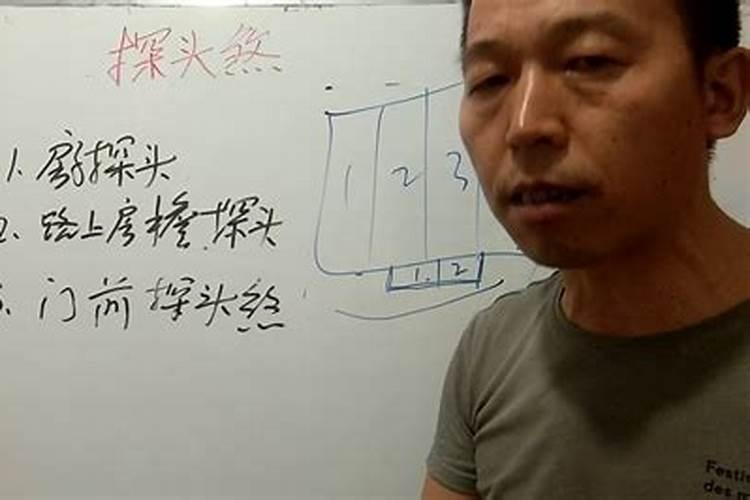 探头煞
1. 房探头
2. 路上房檐探头
3. 门前探头煞
1 2 3
1. 2
Festi
des